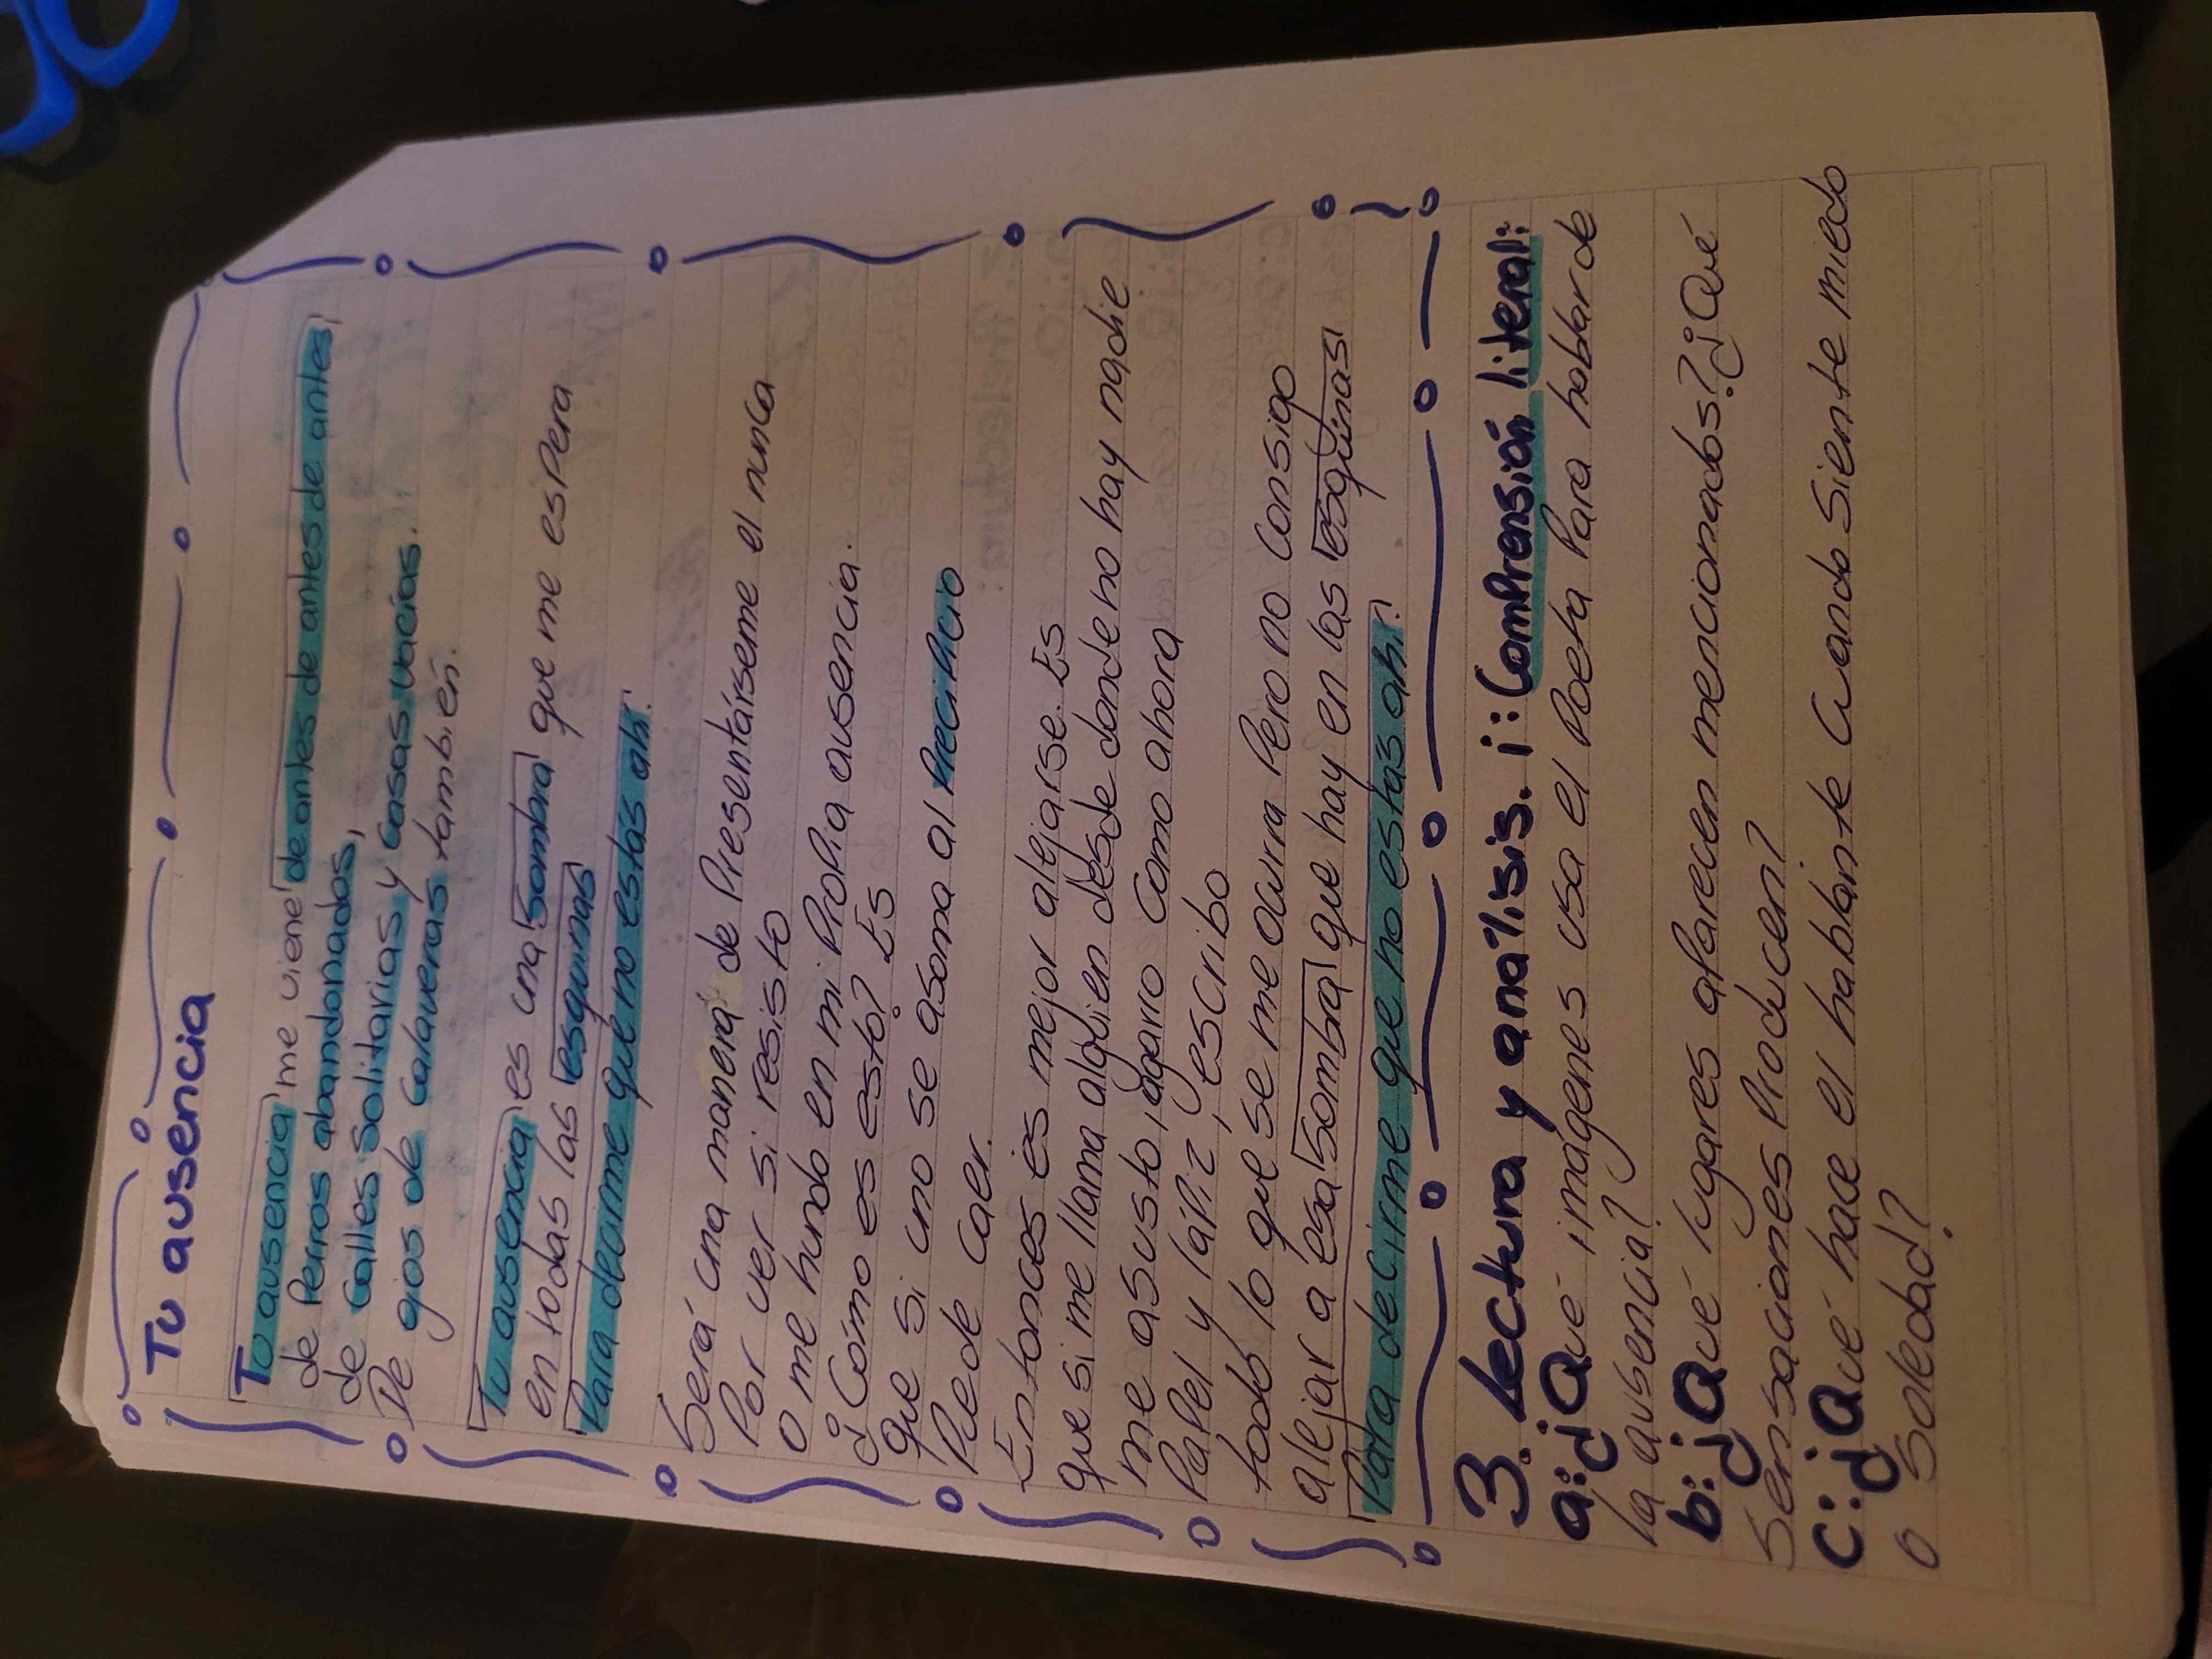 Tu ausencia
Tu ausencia me viene de antes de antes de antes
de Perros abandonados,
de calles solitarias y casas vacías.
De ojos de calaveras también.
Tu ausencia es una sombra que me espera
en todas las esquinas
Para decirme que no estas ahí.
Será una manera de Presentárseme el nunca
Por ver si resisto
o me hundo en mi Propia ausencia.
¿Cómo es esto? Es
que si uno se asoma al Precipicio
Puede caer.
Entonces es mejor alejarse. Es
que si me llama alguien desde donde no hay nadie
me asusto, agarro como ahora
Papel y lápiz, escribo
todo lo que se me ocurra Pero no consigo
alejar a esa sombra que hay en las esquinas
Para decirme que no estas ahí.
3. Lectura y analísis. i: Comprensión literal:
a: ¿Qué imágenes usa el Poeta Para hablar de
la ausencia?
b: ¿Qué lugares aparecen mencionados? ¿Qué
sensaciones Producen?
c: ¿Qué hace el hablante cuando siente miedo
o soledad?